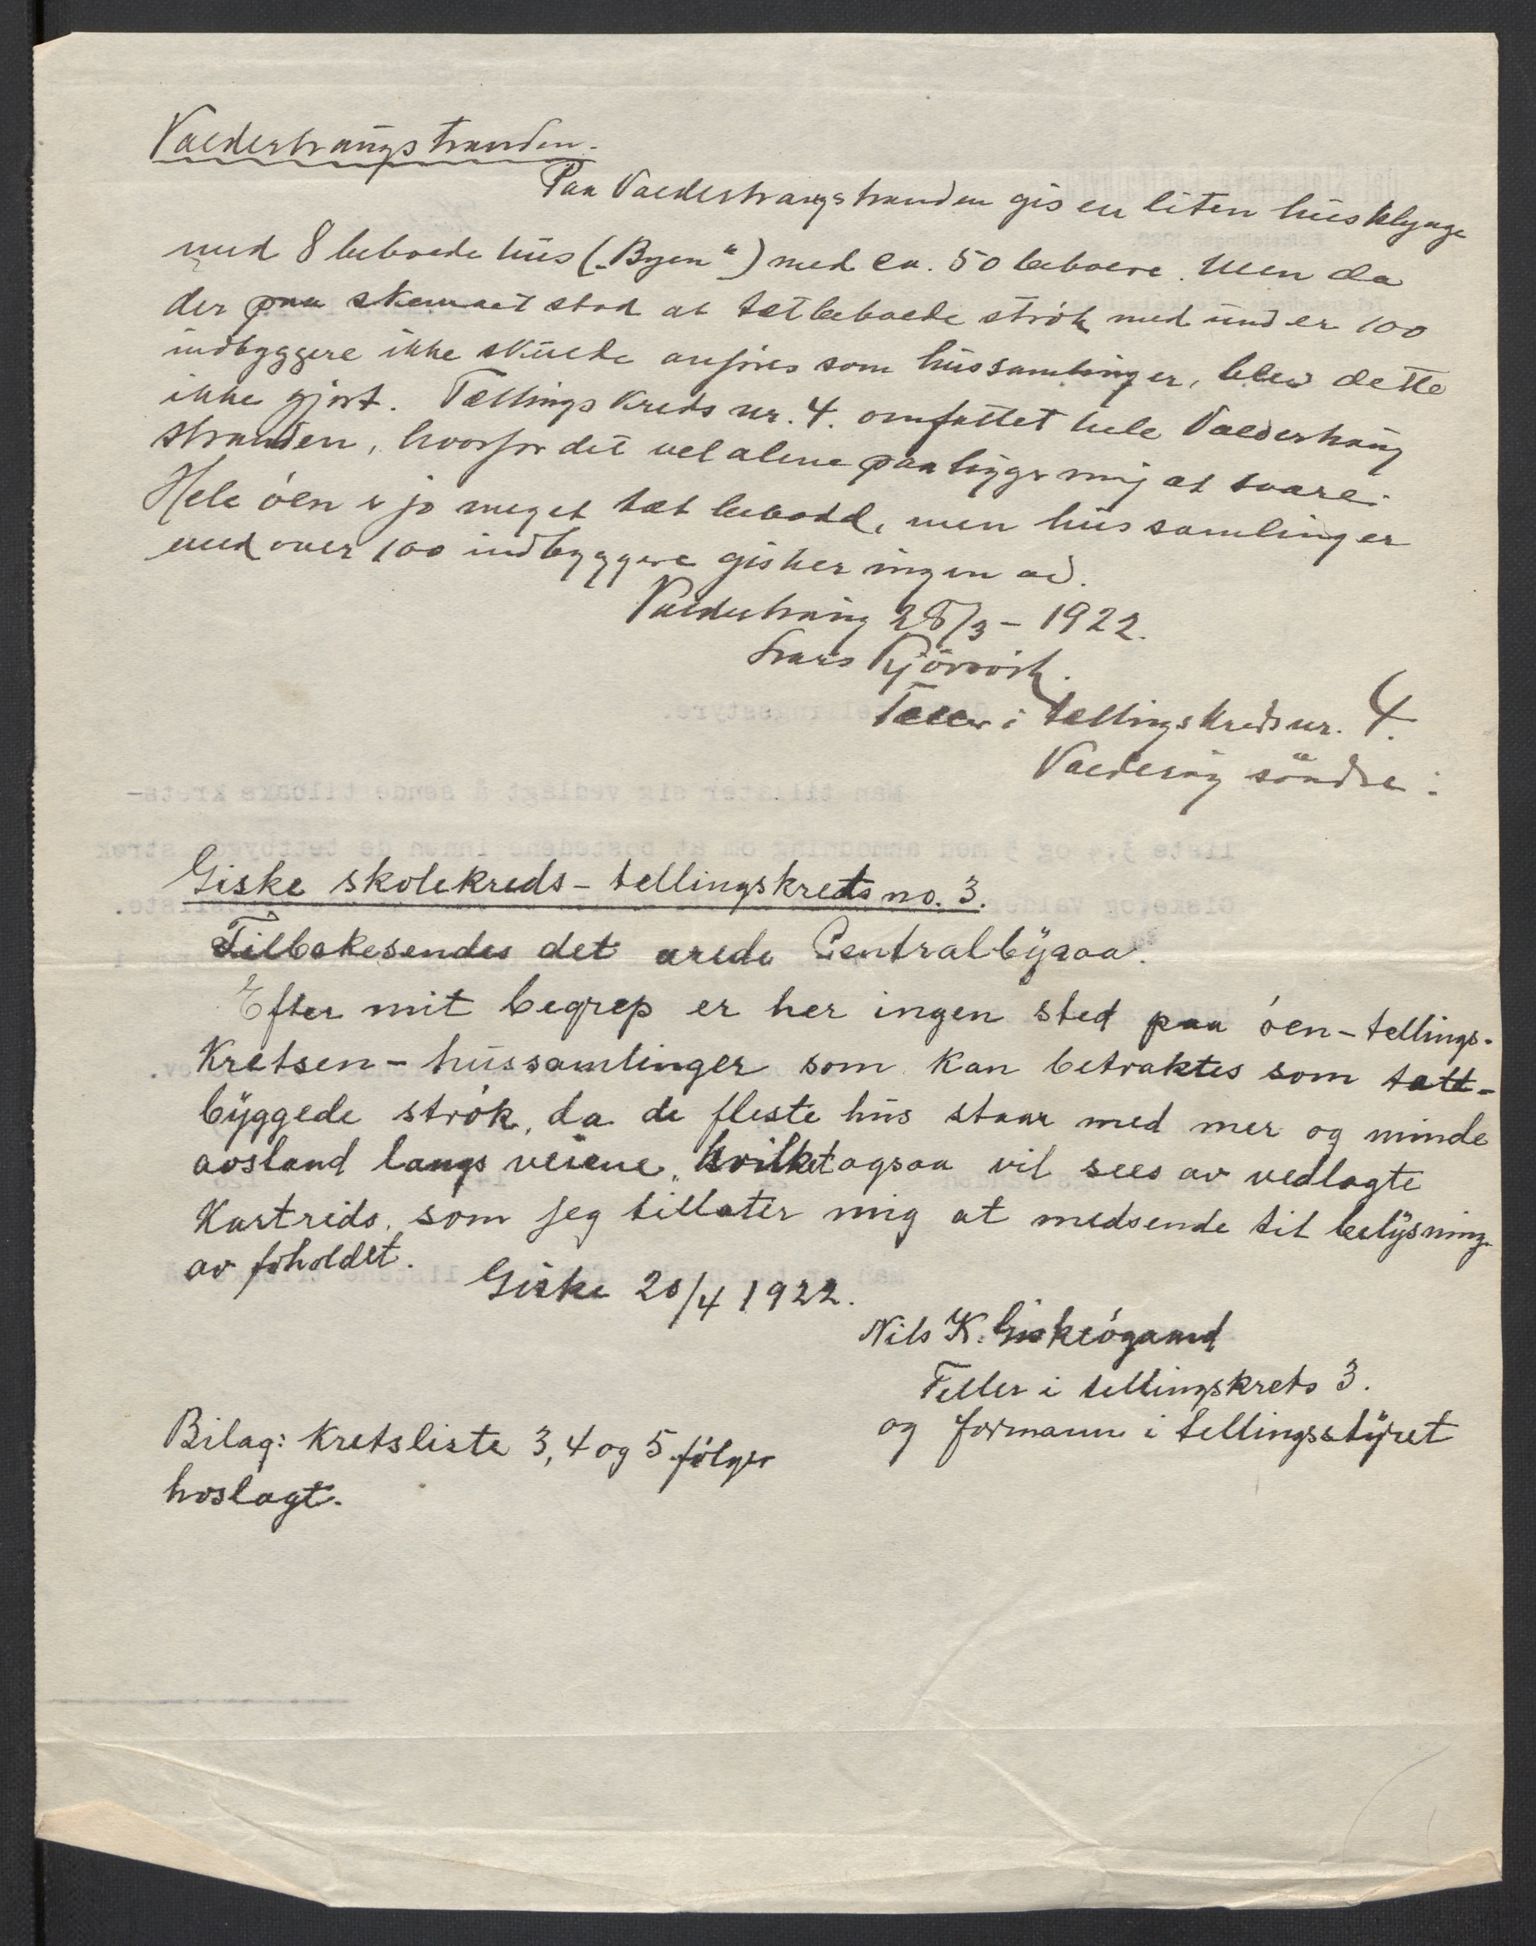 Valderhaugstranden.
Paa Valderhaugstranden gis en liten husklynge
med 8 beboede hus („Byen“) med ca. 50 beboere. Men da
der paa skemaet stod at tætbeboede strøk med under 100
indbyggere ikke skulde anføres som hussamlinger, blev dette
ikke gjort. Tællingskreds nr. 4. omfattet hele Valderhaug
stranden, hvorfor det vel alene paaligger mig at svare.
Hele øen er jo meget tæt bebodd, men hussamlinger
med over 100 indbyggere gis her ingen av.
Valderhaug 28/3 - 1922.
Lars
Tæller i tællingskreds nr. 4.
Valderøy søndre.
Giske skolekreds - tellingskrets no. 3.
Tilbakesendes det ærede Centralbyraa.
Efter mit begrep er her ingen sted paa øen - tellings-
kretsen - hussamlinger som kan betraktes som tætt-
byggede strøk, da de fleste hus staar med mer og minde
avstand langs veiene, hvilket ogsaa vil sees av vedlagte
Kartrids, som jeg tillater mig at medsende til belysning
av foholdet.
Giske 20/4 1922.
Nils K. Giskeøgaard
Teller i tellingskrets 3.
og formann i tellingsstyret
Bilag: Kretsliste 3, 4 og 5 følger
hoslagt.